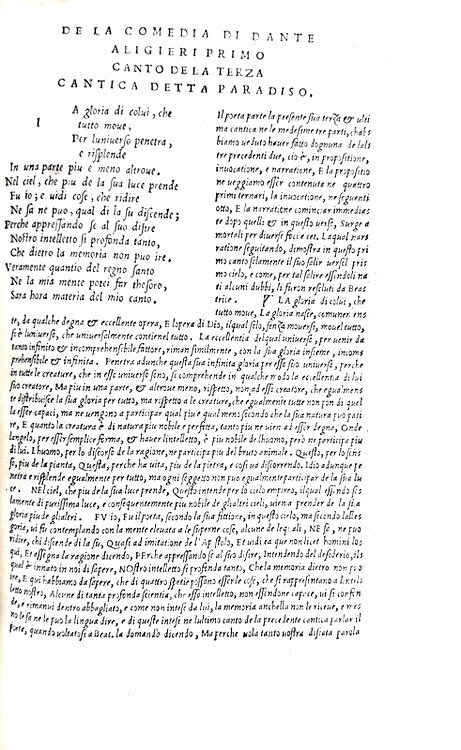 DE LA COMEDIA DI DANTE
ALIGIERI PRIMO
CANTO DE LA TERZA
CANTICA DETTA PARADISO.
A gloria di colui, che
tutto move,
Per luniverso penetra,
e risplende
In una parte piu e meno altrove.
Nel ciel, che piu de la sua luce prende
Fu io; e vidi cose, che ridire
Ne sa ne puo, qual di la su discende;
Perche appressando se al suo disire
Nostro intelletto si profonda tanto,
Che dietro la memoria non puo ire.
Veramente quantio del regno santo
Ne la mia mente potei far thesoro,
Sara hora materia del mio canto.
Il poeta parte la presente sua terza & ulti
ma cantica ne le medesime tre parti, chabs
biamo veduto haver fatto dognuna de lals
tre precedenti due, cio è, in propositione,
invocatione, e narratione, E la propositio
ne veggiamo esser contenuta ne quattro
primi ternari, la invocatione, ne seguenti
otto, E la narratione cominciar immedias
te dopo quelli & in questo verse, Surge a
mortali per diverse foci e cet. La qual nars
ratione seguitando, dimostra in questo pri
mo canto solamente il suo salir verso'l pris
mo cielo, e come, per tal salire essendoli na
ti alcuni dubbi, li furon resoluti da Beas
trice. LA gloria di colui, che
tutto move, La gloria nasce, comunen ens
te, da qualche degna & eccellente opera, E lopera di Dio, ilqual solo, senza moversi, move'l tutto,
si è luniverso, che universalmente contiene'l tutto. La eccellentia delqual universo, per venir da
tanto infinito & incomprehensibile fattore, riman similmente, con la sua gloria insieme, incoms
prehensibile & infinita. Penetra adunche questa sua infinita gloria per esso suo universo, perche
in tutte le creature, che in esso universo sono, si comprehende in qualche modo la eccellentia di lui
suo creatore, Ma piu in una parte, & altrove meno, rispetto, non ad esso creatore, che egualmens
te distribuisce la sua gloria per tutto, ma rispetto a le creature, che egualmente tutte non son di quel
la esser capaci, ma ne vengono a participar qual piu e qual meno secondo che la sua natura puo pati
re, E quanto la creatura è di natura piu nobile e perfetta, tanto piu ne vien ad esser degna, Onde
langelo, per esser semplice forma, & haver lintelletto, è piu nobile de lhuomo, pero ne participa piu
di lui. Lhuomo, per lo discorso de la ragione, ne participa piu del bruto animale. Questo, per lo sens
so, piu de la pianta, Questa, perche ha vita, piu de la pietra, e cosi va discorrendo. Idio adunque pe
netra e risplende egualmente per tutto, ma ogni soggetto non puo egualmente participar de la sua lu
ce. NEl ciel, che piu de la sua luce prende, Questo intende per lo cielo empireo, ilqual essendo sos
lamente di purissima luce, e consequentemente piu nobile de glialtri cieli, viene a prender de la sua
gloria piu de glialtri. FU io, Fu il poeta, secondo la sua fittione, in questo cielo, ma secondo lalles
goria, vi fu contemplando con la mente elevata a le superne cose, alcune de lequali, NE sa, ne puo
ridire, chi discende di la su, Quasi ad imitatione de l'Apostolo, Et vidi ea que non licet homini los
qui, Et assegna la ragione dicendo, PErche appressando se al suo disire, Intendendo del desiderio, ils
qual è innato in noi di sapere, NOstro intelletto si profonda tanto, Che la memoria dietro non puo
ire, E qui habbiamo da sapere, che di quattro spetie possano esser le cose, che si rappresentano a lintels
letto nostro, Alcune di tanta profonda scientia, che esso intelletto, non essendone capace, vi si confon
de, e rimanvi dentro abbagliato, e come non intese da lui, la memoria anchella non le riceve, e mes
no le sa ne le puo la lingua dire, e di queste intese ne lultimo canto de la precedente cantica parlar il
poeta, quando voltatosi a Beat. la domandò dicendo, Ma perche vola tanto vostra disiata parola